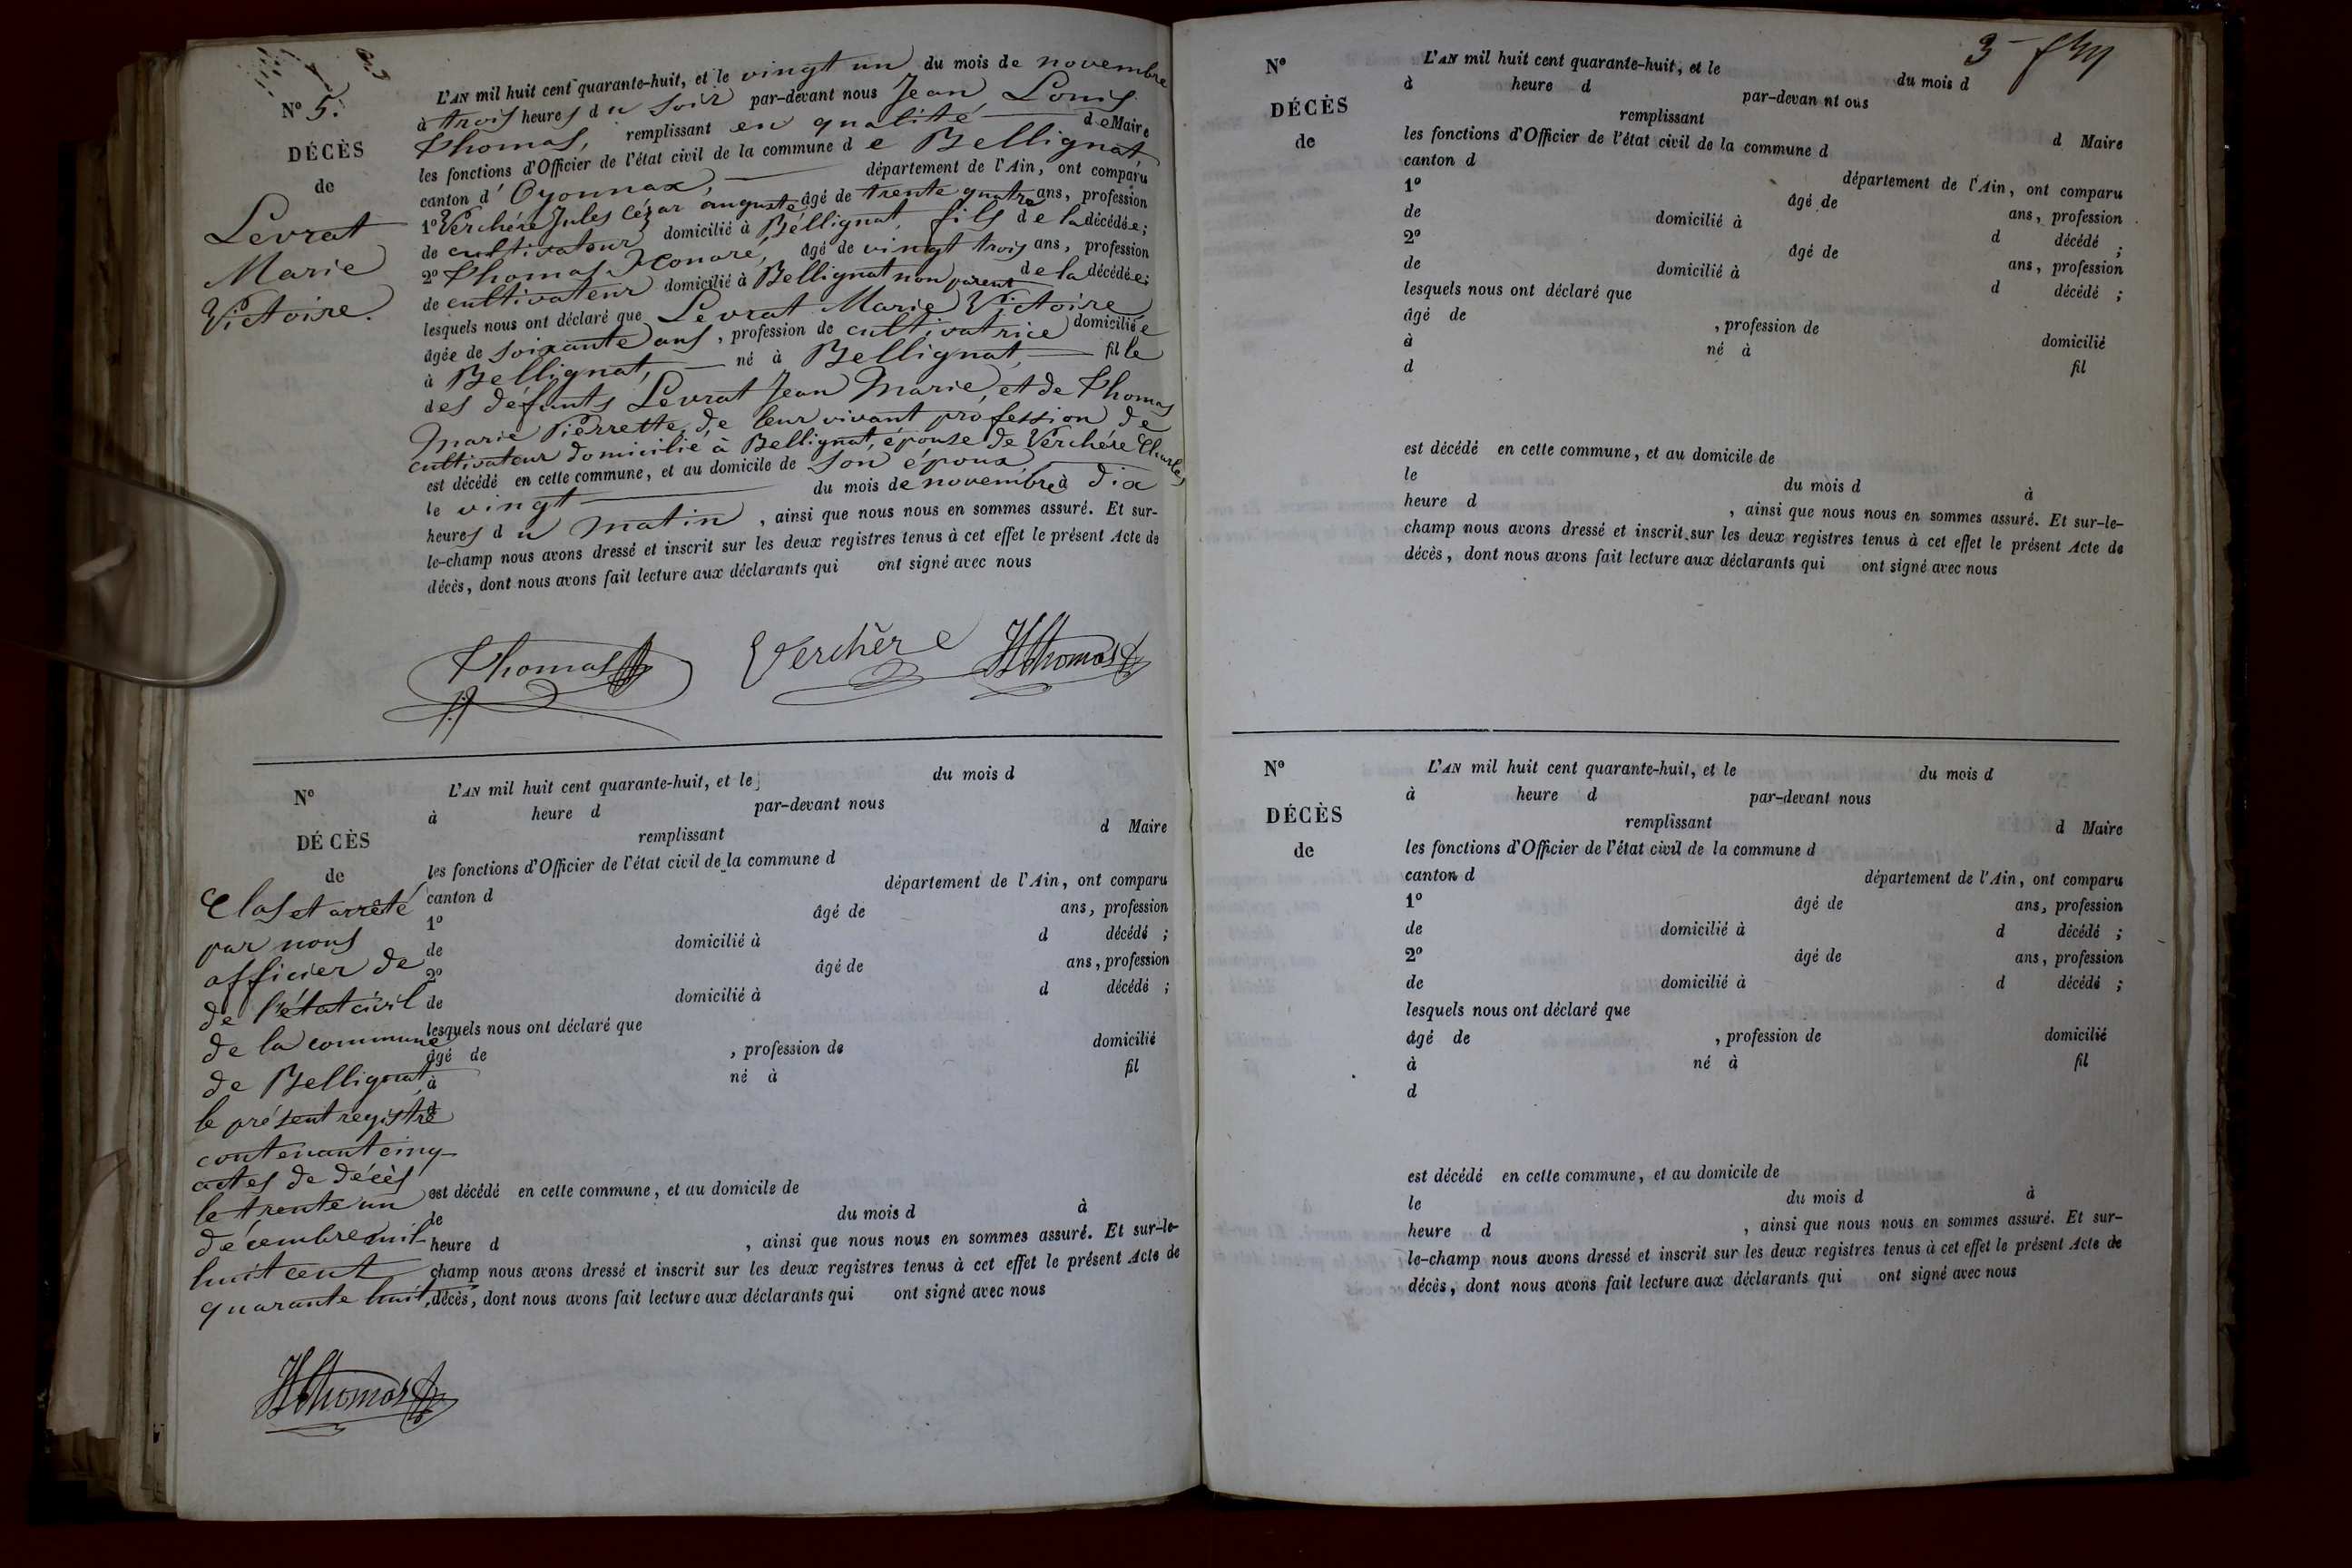 N° 5.
DÉCÈS
de
Levrat
Marie
Victoire.
L'AN mil huit cent quarante-huit, et le vingt un du mois de novembre
à trois heures du soir par-devant nous Jean Louis
Thomas, remplissant en qualité de Maire
les fonctions d'Officier de l'état civil de la commune de Bellignat,
canton d'Oyonnax, département de l'Ain, ont comparu
1° Verchére Jules Cézar auguste âgé de trente quatre ans, profession
de cultivateur domicilié à Béllignat, fils de la décédée;
2° Thomas Honoré, âgé de vingt trois ans, profession
de cultivateur domicilié à Bellignat non parent de la décédée;
lesquels nous ont déclaré que Levrat Marie Victoire
âgée de soixante ans, profession de cultivatrice domiciliée
à Bellignat, né à Bellignat, fille
des défunts Levrat Jean Marie, et de Thomas
Marie Pierrette, de leur vivant profession de
cultivateur domicilié à Bellignat, épouse de Verchére Charles,
est décédé en cette commune, et au domicile de son époux,
le vingt du mois de novembre à dix
heures du matin, ainsi que nous nous en sommes assuré. Et sur-
le-champ nous avons dressé et inscrit sur les deux registres tenus à cet effet le présent Acte de
décès, dont nous avons fait lecture aux déclarants qui ont signé avec nous
Thomas Verchère HThomas
N°
DÉCÈS
de
Clos et arrêté
par nous
officier de
de l'état civil
de la commune
de Bellignat,
le présent registre
contenant cinq
actes de décès
le trente un
décembre mil
huit cent
quarante huit,
HThomas
L'AN mil huit cent quarante-huit, et le du mois d
à heure d par-devant nous
remplissant d Maire
les fonctions d'Officier de l'état civil de la commune d
canton d département de l'Ain, ont comparu
1° âgé de ans, profession
de domicilié à d décédé ;
2° âgé de ans, profession
de domicilié à d décédé ;
lesquels nous ont déclaré que
âgé de , profession de domicilié
à né à fil
d
est décédé en cette commune, et au domicile de
le du mois d à
heure d , ainsi que nous nous en sommes assuré. Et sur-le-
champ nous avons dressé et inscrit sur les deux registres tenus à cet effet le présent Acte de
décès, dont nous avons fait lecture aux déclarants qui ont signé avec nous
3
N°
DÉCÈS
de
L'AN mil huit cent quarante-huit, et le du mois d
à heure d par-devan nt ous
remplissant d Maire
les fonctions d'Officier de l'état civil de la commune d
canton d département de l'Ain, ont comparu
1° âgé de ans, profession
de domicilié à d décédé ;
2° âgé de ans, profession
de domicilié à d décédé ;
lesquels nous ont déclaré que
âgé de , profession de domicilié
à né à fil
d
est décédé en cette commune, et au domicile de
le du mois d à
heure d , ainsi que nous nous en sommes assuré. Et sur-le-
champ nous avons dressé et inscrit sur les deux registres tenus à cet effet le présent Acte de
décès, dont nous avons fait lecture aux déclarants qui ont signé avec nous
N°
DÉCÈS
de
L'AN mil huit cent quarante-huit, et le du mois d
à heure d par-devant nous
remplissant d Maire
les fonctions d'Officier de l'état civil de la commune d
canton d département de l'Ain, ont comparu
1° âgé de ans, profession
de domicilié à d décédé ;
2° âgé de ans, profession
de domicilié à d décédé ;
lesquels nous ont déclaré que
âgé de , profession de domicilié
à né à fil
d
est décédé en cette commune, et au domicile de
le du mois d à
heure d , ainsi que nous nous en sommes assuré. Et sur-
le-champ nous avons dressé et inscrit sur les deux registres tenus à cet effet le présent Acte de
décès, dont nous avons fait lecture aux déclarants qui ont signé avec nous